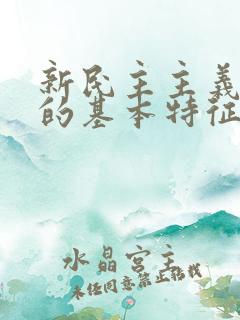 新民主主義
的基本特征
水晶宫主
未任同意禁止轉載